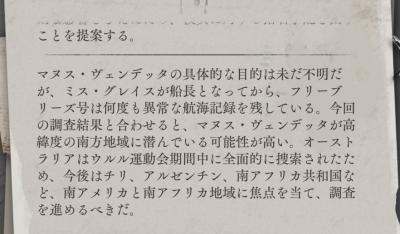 ことを提案する。
マヌス・ヴェンデッタの具体的な目的は未だ不明だ
が、ミス・グレイスが船長となってから、フリーブ
リーズ号は何度も異常な航海記録を残している。今回
の調査結果と合わせると、マヌス・ヴェンデッタが高
緯度の南方地域に潜んでいる可能性が高い。オースト
ラリアはウルル運動会期間中に全面的に捜索されたた
め、今後はチリ、アルゼンチン、南アフリカ共和国な
ど、南アメリカと南アフリカ地域に焦点を当て、調査
を進めるべきだ。